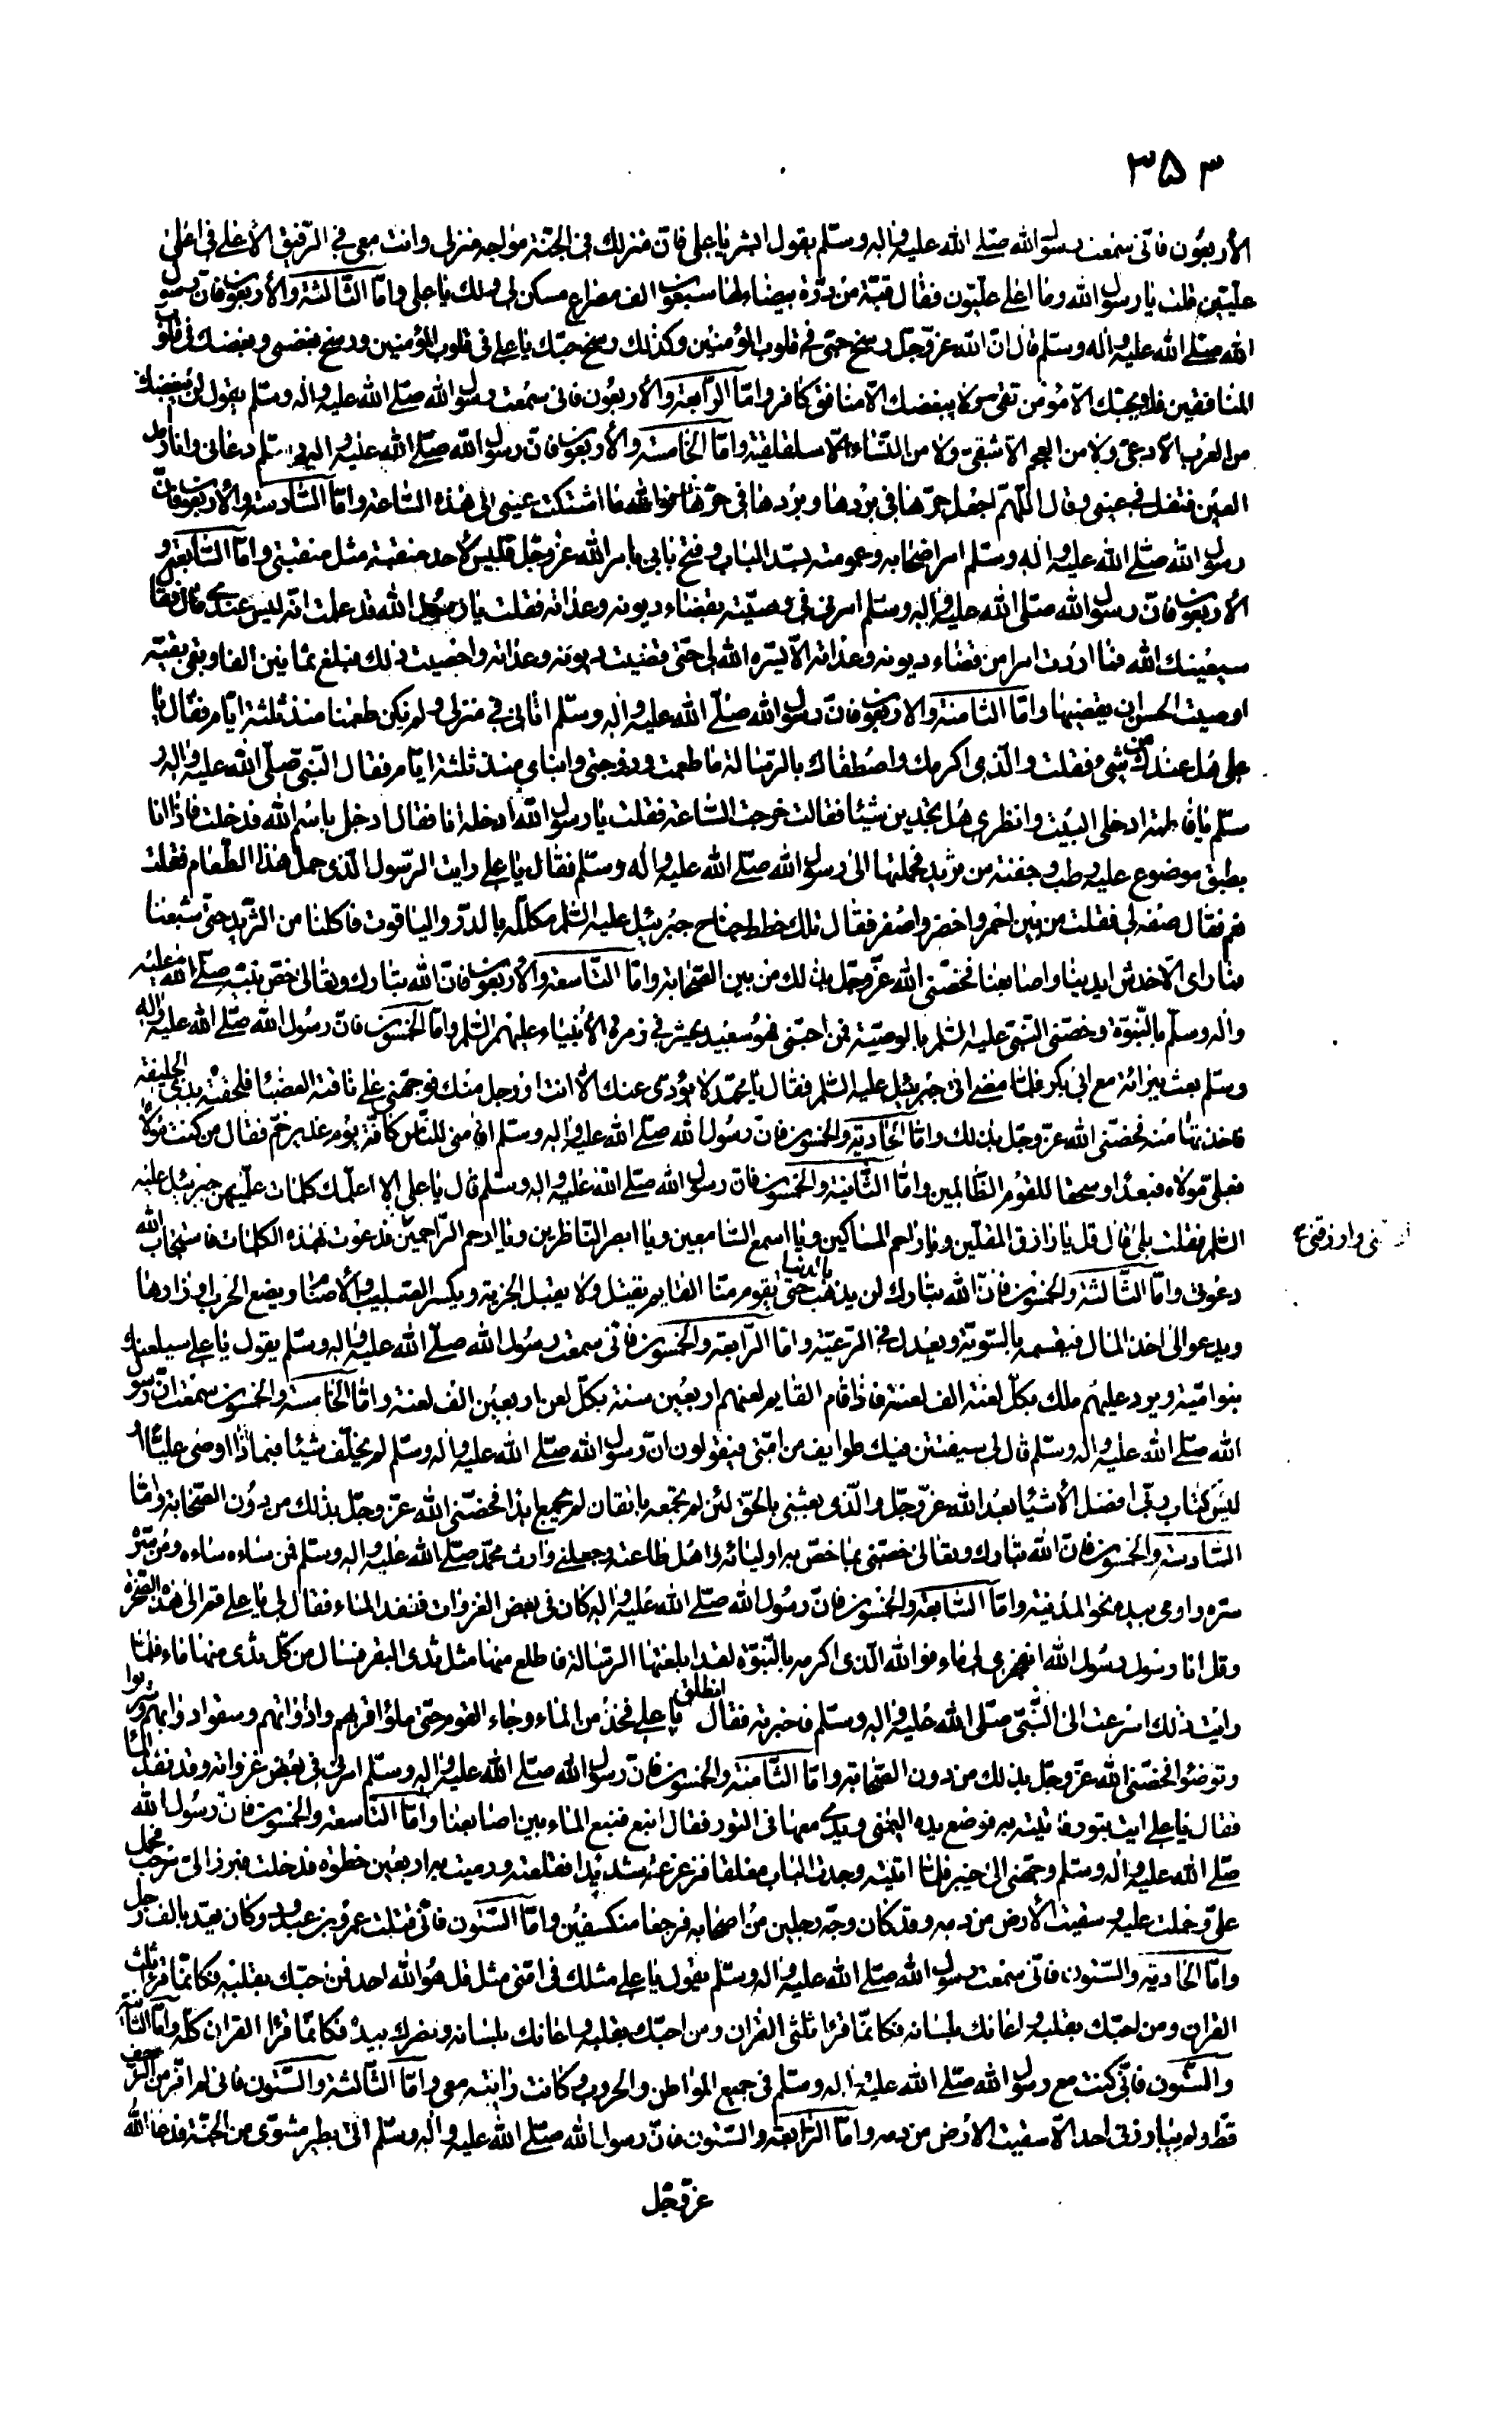 ٣٥٣
الأربعون فانّی سمعت رسول الله صلّی الله علیه واله وسلّم یقول ابشر یا علی فانّ منزلك فی الجنّة مواجه منزلی وانت معی فی الرّفیق الأعلی فی اعلی
علیّین قلت یا رسول الله وما اعلی علیّون فقال قبّة من درّة بیضاء لها سبعون الف مصراع مسکن لی ولك یا علی وامّا الثّالثة والأربعون فانّ رسول
الله صلّی الله علیه واله وسلّم قال انّ الله عزّ وجلّ رسخ حبّی فی قلوب المؤمنین وکذلك رسخ حبّك یا علی فی قلوب المؤمنین ورسخ بغضی وبغضك فی قلوب
المنافقین فلا یحبّك الّا مؤمن تقی ولا یبغضك الّا منافق کافر وامّا الرّابعة والأربعون فانی سمعت رسول الله صلّی الله علیه واله وسلّم یقول لن یبغضك
من العرب الّا دعی ولا من العجم الّا شقی ولا من النّساء الّا سلقلقیّة وامّا الخامسة والأربعون فانّ رسول الله صلّی الله علیه واله وسلّم دعانی وانا رمد
العین فتفل فی عینی وقال اللّهمّ اجعل حرّها فی بردها وبردها فی حرّها فوالله ما اشتکت عینی الی هذه السّاعة وامّا السّادسة والأربعون فانّ
رسول الله صلّی الله علیه واله وسلّم امر اصحابه وعمومته بسدّ الباب وفتح بابی بامر الله عزّ وجلّ فلیس لأحد منقبة مثل منقبتی وامّا السّابعة و
الأربعون فانّ رسول الله صلّی الله علیه واله وسلّم امرنی فی وصیّته بقضاء دیونه وعداته فقلت یا رسول الله قد علمت انّه لیس عندی مال فقال
سیعینك الله فما اردت امرا من قضاء دیونه وعداته الّا یسّره الله لی حتی قضیت دیونه وعداته واحصیت ذلك فبلغ ثمانین الفا وبقی بقیّة
اوصیت الحسن ان یقضیها وامّا الثامنة والاربعون فانّ رسول الله صلّی الله علیه واله وسلّم اتانی فی منزلی ولم یکن طعمنا منذ ثلثة ایّام فقال یا
علی هل عندك من شیء فقلت والّذی اکرمك واصطفاك بالرّسالة ما طعمت وزوجتی وابنای منذ ثلثة ایّام فقال النّبی صلّی الله علیه واله و
سلّم یا فاطمة ادخلی البیت وانظری هل تجدین شیئا فقالت خرجت السّاعة فقلت یا رسول الله ادخله انا فقال ادخل باسم الله فدخلت فاذا انا
بطبق موضوع علیه رطب وجفنة من ثرید فحملتها الی رسول الله صلّی الله علیه واله وسلّم فقال یا علی رایت الرّسول الّذی حمل هذا الطّعام فقلت
نعم فقال صفه لی فقلت من بین احمر واخضر واصفر فقال تلك خطط جناح جبرئیل علیه السّلم مکلّلة بالدّر والیاقوت فاکلنا من الثّرید حتی شبعنا
فما رای الّا خدش ایدینا واصابعنا فخصّنی الله عزّ وجلّ بذلك من بین الصّحابة وامّا التّاسعة والأربعون فانّ الله تبارك وتعالی خصّ نبیّه صلّی الله علیه
واله وسلّم بالنّبوّة وخصّنی النّبی علیه السّلم بالوصیّة فمن احبّنی فهو سعید یحشر فی زمرة الأنبیاء علیهم السّلم وامّا الخمسون فانّ رسول الله صلّی الله علیه واله
وسلّم بعث ببرائة مع ابی بکر فلمّا مضی اتی جبرئیل علیه السّلم فقال یا محمّد لا یؤدی عنك الّا انت او رجل منك فوجّهنی علی ناقته العضباء فلحقته بذی الحلیفة
فاخذتها منه فخصّنی الله عزّ وجلّ بذلك وامّا الحادیة والخمسون فانّ رسول الله صلّی الله علیه واله وسلّم اقامنی للنّاس کافّة یوم غدیر خم فقال من کنت مولاه
فعلیّ مولاه فبعدا وسحقا للقوم الظالمین وامّا الثّانیة والخمسون فانّ رسول الله صلّی الله علیه واله وسلّم قال یا علی الا اعلّمك کلمات علّمنیهنّ جبرئیل علیه
السّلم فقلت بلی قال قل یا رازق المقلّین ویا راحم المساکین ویا اسمع السّامعین ویا ابصر النّاظرین ویا ارحم الرّاحمین فدعوت بهذه الکلمات فاستجاب الله
نی وارزقنی
دعوتی وامّا الثّالثة والخمسون فانّ الله تبارك لن یذهب بالدنیا حتی یقوم منّا القایم یقتل ولا یقبل الجزیة ویکسر الصّلیب والأصنام ویضع الحرب اوزارها
ویدعو الی اخذ المال فیقسمه بالسّویّة ویعدل فی الرّعیّة وامّا الرّابعة والخمسون فانّی سمعت رسول الله صلّی الله علیه واله وسلّم یقول یا علی سیلعنك
بنو امیّة ویرد علیهم ملك بکلّ لعنة الف لعنة فاذا قام القایم لعنهم اربعین سنة بکلّ لعن اربعین الف لعنة وامّا الخامسة والخمسون سمعت انّ رسول
الله صلّی الله علیه واله وسلّم قال لی سیفتتن فیك طوایف من امّتی فیقولون انّ رسول الله صلّی الله علیه واله وسلّم لم یخلّف شیئا فبماذا اوصی علیّا او
لیس کتاب ربّی افضل الأشیاء بعد الله عزّ وجلّ والّذی بعثنی بالحقّ لئن لم تجمعه باتقان لم یجمع ابدا فخصّنی الله عزّ وجلّ بذلك من دون الصّحابة وامّا
السّادسة والخمسون فانّ الله تبارك وتعالی خصّنی بما خصّ به اولیائه واهل طاعته وجعلنی وارث محمّد صلّی الله علیه واله وسلّم فمن ساءه ساءه ومن سرّه
سرّه واومی بیده نحو المدینة وامّا السّابعة والخمسون فانّ رسول الله صلّی الله علیه واله کان فی بعض الغزوات فنفد الماء فقال لی یا علی قم الی هذه الصّخرة
وقل انا رسول رسول الله انفجری لی ماء فوالله الّذی اکرمه بالنّبوّة لقد ابلغتها الرّسالة فاطلع منها مثل ثدی البقر فسال من کلّ ثدی منها ماء فلمّا
رایت ذلك اسرعت الی النّبی صلّی الله علیه واله وسلّم فاخبرته فقال انطلق یا علی فخذ من الماء وجاء القوم حتی ملؤا قربهم واداواتهم وسقوا دوابهم وشربوا
وتوضّوا فخصّنی الله عزّ وجلّ بذلك من دون الصّحابة وامّا الثّامنة والخمسون فانّ رسول الله صلّی الله علیه واله وسلّم امرنی فی بعض غزواته وقد نفد الماء
فقال یا علی ایت بتور فاتیته به فوضع یده الیمنی ویدی معها فی التور فقال انبع فنبع الماء بین اصابعنا وامّا التّاسعة والخمسون فانّ رسول الله
صلّی الله علیه واله وسلّم وجّهنی الی خیبر فلمّا اتیته وجدت الباب مغلقا فزعزعته شدیدا فقلعته ورمیت به اربعین خطوة فدخلت فبرز الیّ مرحب فحمل
علیّ وحملت علیه وسقیت الأرض من دمه وقد کان وجّه رجلین من اصحابه فرجعا منکسفین وامّا السّتّون فانّی قتلت عمرو بن عبد ود وکان یعدّ بالف رجل
وامّا الحادیة والسّتّون فانّی سمعت رسول الله صلّی الله علیه واله وسلّم یقول یا علی مثلك فی امّتی مثل قل هو الله احد فمن احبّك بقلبه فکانّما قرا ثلث
القران ومن احبّك بقلبه واعانك بلسانه فکانّما قرا ثلثی القران ومن احبّك بقلبه واعانك بلسانه ونصرك بیده فکانّما قرا القران کلّه وامّا الثّانیة
والسّتّون فانّی کنت مع رسول الله صلّی الله علیه واله وسلّم فی جمیع المواطن والحروب وکانت رایته معی وامّا الثّالثة والسّتّون فانی لم افرّ من الزّحف
قطّ ولم یبارزنی احد الّا سقیت الارض من دمه وامّا الرّابعة والسّتّون فانّ رسول الله صلّی الله علیه واله وسلّم اتی بطیر مشوّی من الجنّة فدعا الله
عزّ وجلّ